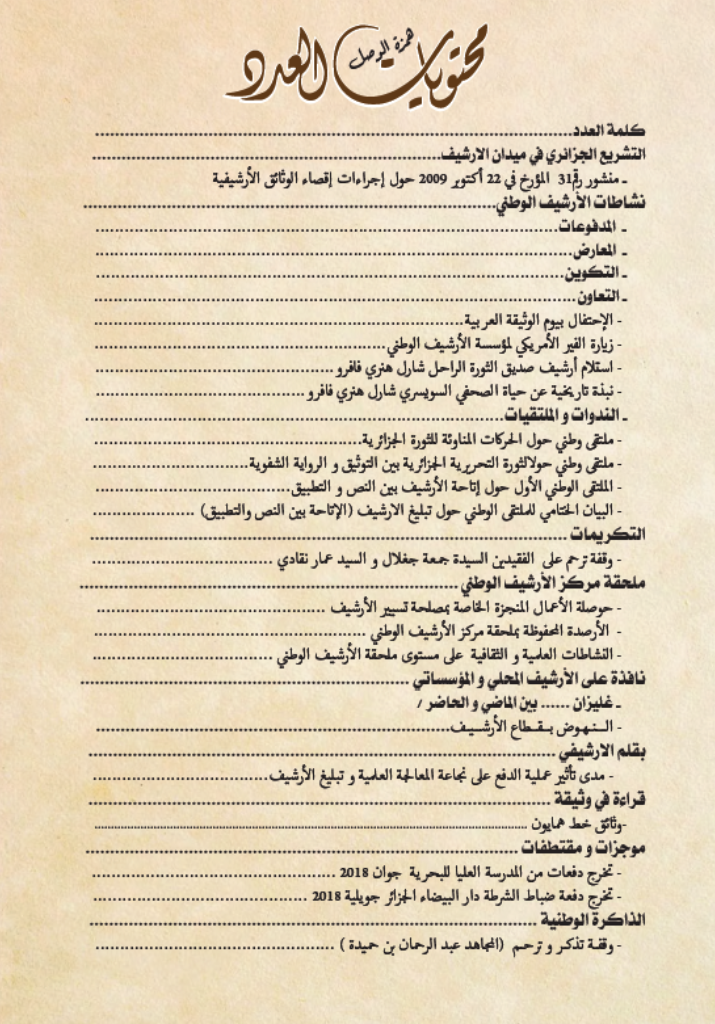 محتويات العدد
همزة الوصل
كلمة العدد......................................................................
التشريع الجزائري في ميدان الارشيف......................................................................
ـ منشور رقم31 المؤرخ في 22 أكتوبر 2009 حول إجراءات إقصاء الوثائق الأرشيفية
نشاطات الأرشيف الوطني......................................................................
ـ المدفوعات......................................................................
ـ المعارض......................................................................
ـ التكوين......................................................................
ـ التعاون......................................................................
- الإحتفال بيوم الوثيقة العربية......................................................
- زيارة الفير الأمريكي لمؤسسة الأرشيف الوطني..............................................
- استلام أرشيف صديق الثورة الراحل شارل هنري فافرو......................................
- نبذة تاريخية عن حياة الصحفي السويسري شارل هنري فافرو..............................
ـ الندوات و الملتقيات......................................................................
- ملتقى وطني حول الحركات المناوئة للثورة الجزائرية..........................................
- ملتقى وطني حولالثورة التحريرية الجزائرية بين التوثيق و الرواية الشفوية......................
- الملتقى الوطني الأول حول إتاحة الأرشيف بين النص و التطبيق..............................
- البيان الختامي للملتقى الوطني حول تبليغ الارشيف (الإتاحة بين النص والتطبيق) ................
التكريمات ......................................................................
- وقفة ترحم على الفقيدين السيدة جمعة جغلال و السيد عمار نقادي ..............................
ملحقة مركز الأرشيف الوطني ..............................................................
- حوصلة الأعمال المنجزة الخاصة بمصلحة تسيير الأرشيف ......................................
- الأرصدة المحفوظة بملحقة مركز الأرشيف الوطني ..............................................
- النشاطات العلمية و الثقافية على مستوى ملحقة الأرشيف الوطني ..............................
نافذة على الأرشيف المحلي و المؤسساتي ......................................................
ـ غليزان ...... بين الماضي و الحاضر /
- النهوض بقطاع الأرشيف..............................................................
بقلم الارشيفي ......................................................................
- مدى تأثير عملية الدفع على نجاعة المعالجة العلمية و تبليغ الأرشيف..............................
قراءة في وثيقة ......................................................................
-وثائق خط همايون ......................................................................
موجزات و مقتطفات ......................................................................
- تخرج دفعات من المدرسة العليا للبحرية جوان 2018 ......................................
- تخرج دفعة ضباط الشرطة دار البيضاء الجزائر جويلية 2018 ..............................
الذاكرة الوطنية ......................................................................
- وقفة تذكر و ترحم (المجاهد عبد الرحمان بن حميدة ) ......................................